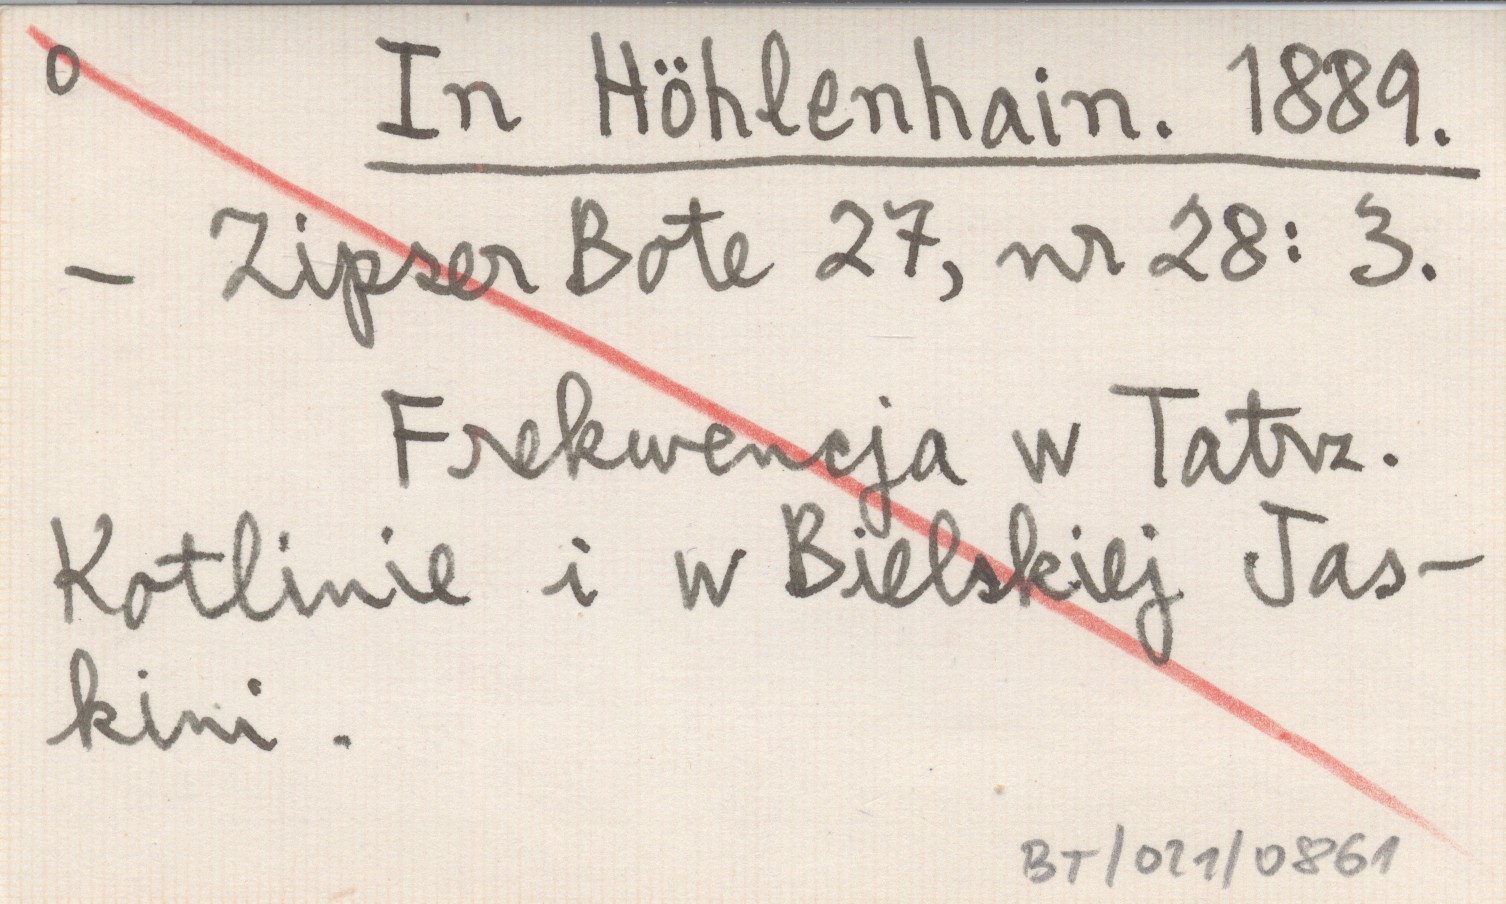 o In Höhlenhain. 1889.
– Zipser Bote 27, nr 28: 3.
Frekwencja w Tatrz.
Kotlinie i w Bielskiej Jas-
kini.
BT/021/0861